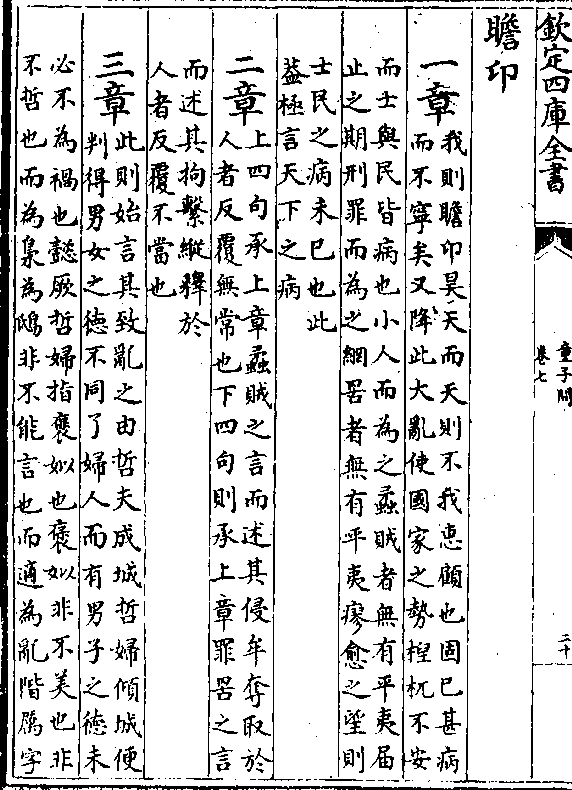 欽定四庫全書
童子問
卷七
二十
瞻印
一章 我則瞻印昊天而天則不我惠顧也固已甚病
而不寧矣又降此大亂使國家之勢桯杌不安
而士與民皆病也小人而為之蟊賊者無有平夷届
止之期刑罪而為之網罟者無有平夷瘳愈之望則
士民之病未已也此
葢極言天下之病
二章 上四句承上章蟊賊之言而述其侵牟奪取於
人者反覆無常也下四句則承上章罪罟之言
而述其拘繫縱釋於
人者反覆不當也
三章 此則始言其致亂之由哲夫成城哲婦傾城便
判得男女之徳不同了婦人而有男子之徳未
必不為禍也懿厥哲婦指褒姒也褒姒非不美也非
不哲也而為梟為鴟非不能言也而適為亂階厲字